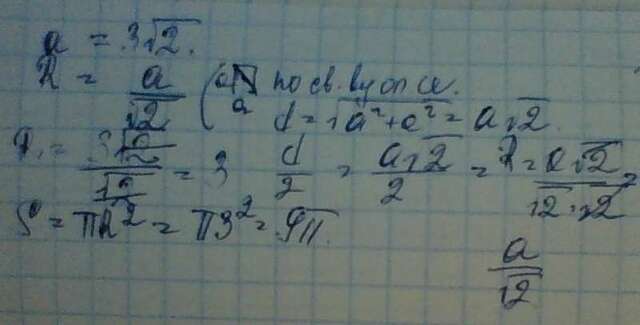 a = 3√2.
R = a/√2 ( a по св. ву
d = √a²+a² = a√2
R = 3√2/√2 = 3 d/2 = a√2/2 = R = a√2/√2·√2 =
S = πR² = π3² = 9π
a/√2